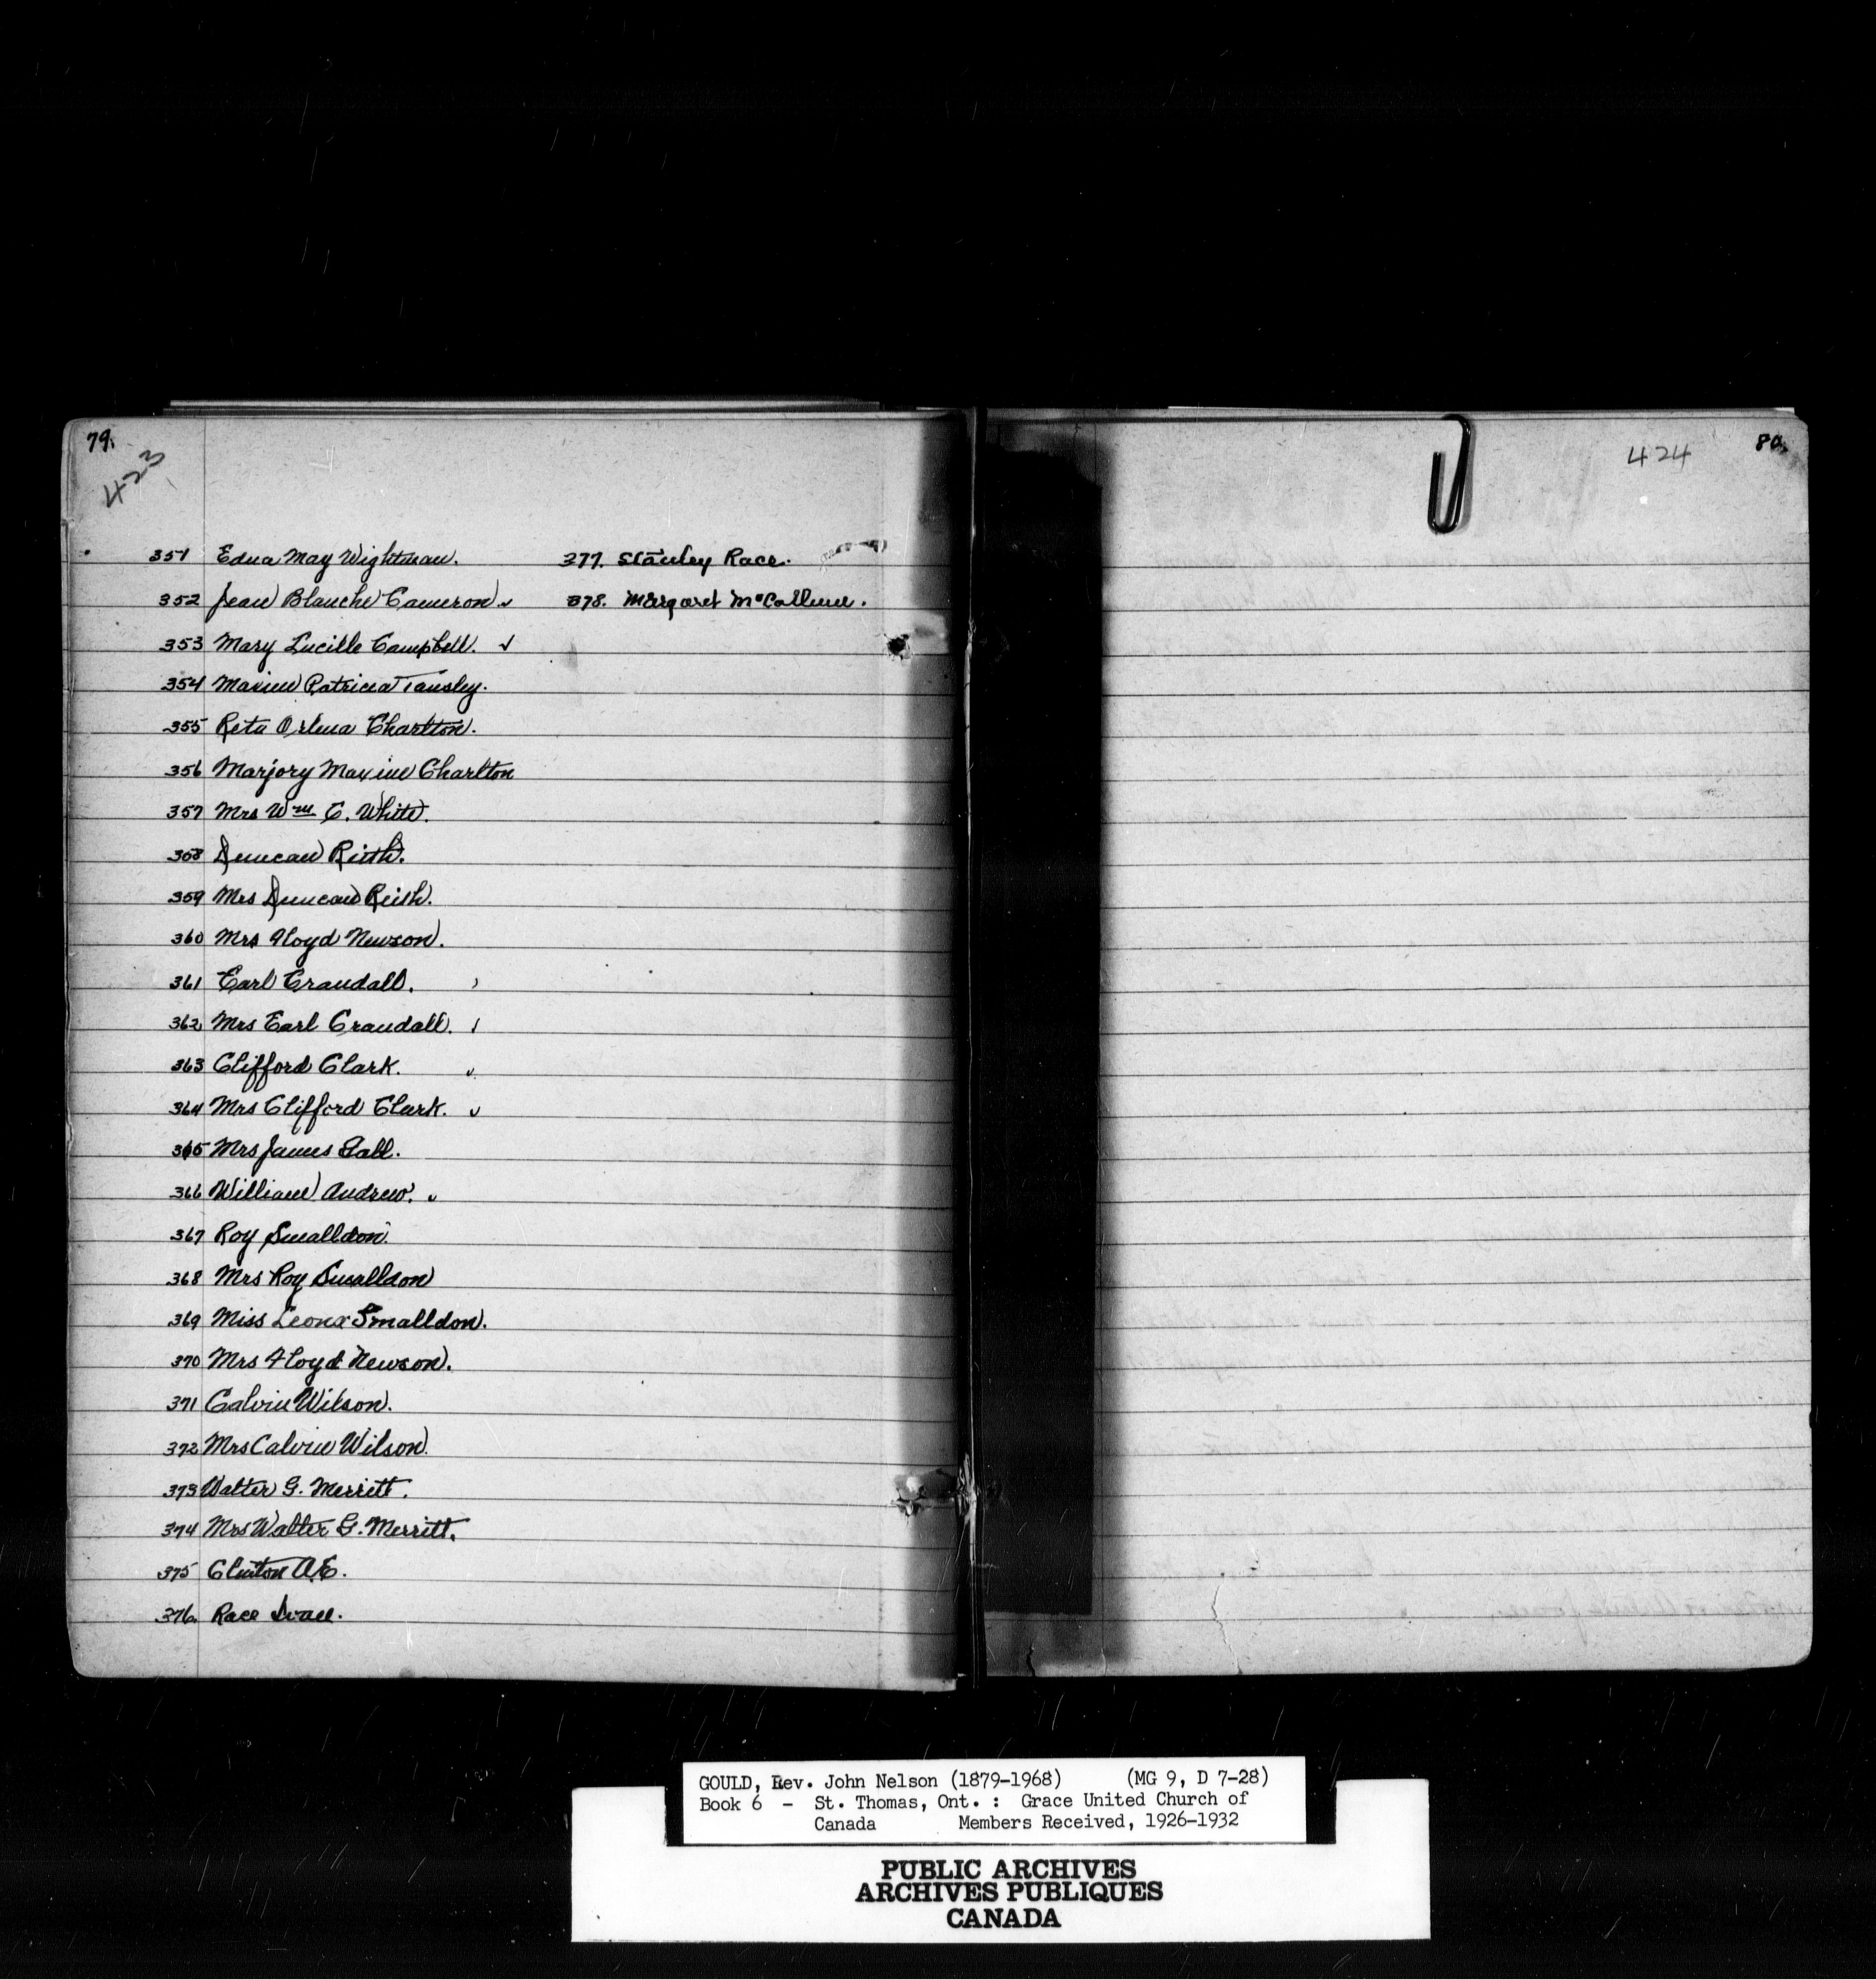 79.
423
351 Edna May Wightman.
352 Jean Blanche Cameron. ✓
353 Mary Lucille Campbell. ✓
354 Maxine Patricia Tansley.
355 Reta Orlena Charlton.
356 Marjory Maxine Charlton
357 Mrs Wm C. White.
358 Duncan Reith.
359 Mrs Duncan Reith.
360 Mrs Floyd Newson.
361 Earl Crandall.
362 Mrs Earl Crandall. ✓
363 Clifford Clark. ✓
364 Mrs Clifford Clark. ✓
365 Mrs James Gall.
366 William Andrew. ✓
367 Roy Smalldon.
368 Mrs Roy Smalldon
369 Miss Leona Smalldon.
370 Mrs Floyd Newson.
371 Calvin Wilson.
372 Mrs Calvin Wilson.
373 Walter G. Merritt.
374 Mrs Walter G. Merritt.
375 Clinton A.E.
376. Race
377. Stanley Race.
378. Margaret McCallum.
424
80.
GOULD, Rev. John Nelson (1879-1968) (MG 9, D 7-28)
Book 6 - St. Thomas, Ont. : Grace United Church of
Canada Members Received, 1926-1932
PUBLIC ARCHIVES
ARCHIVES PUBLIQUES
CANADA